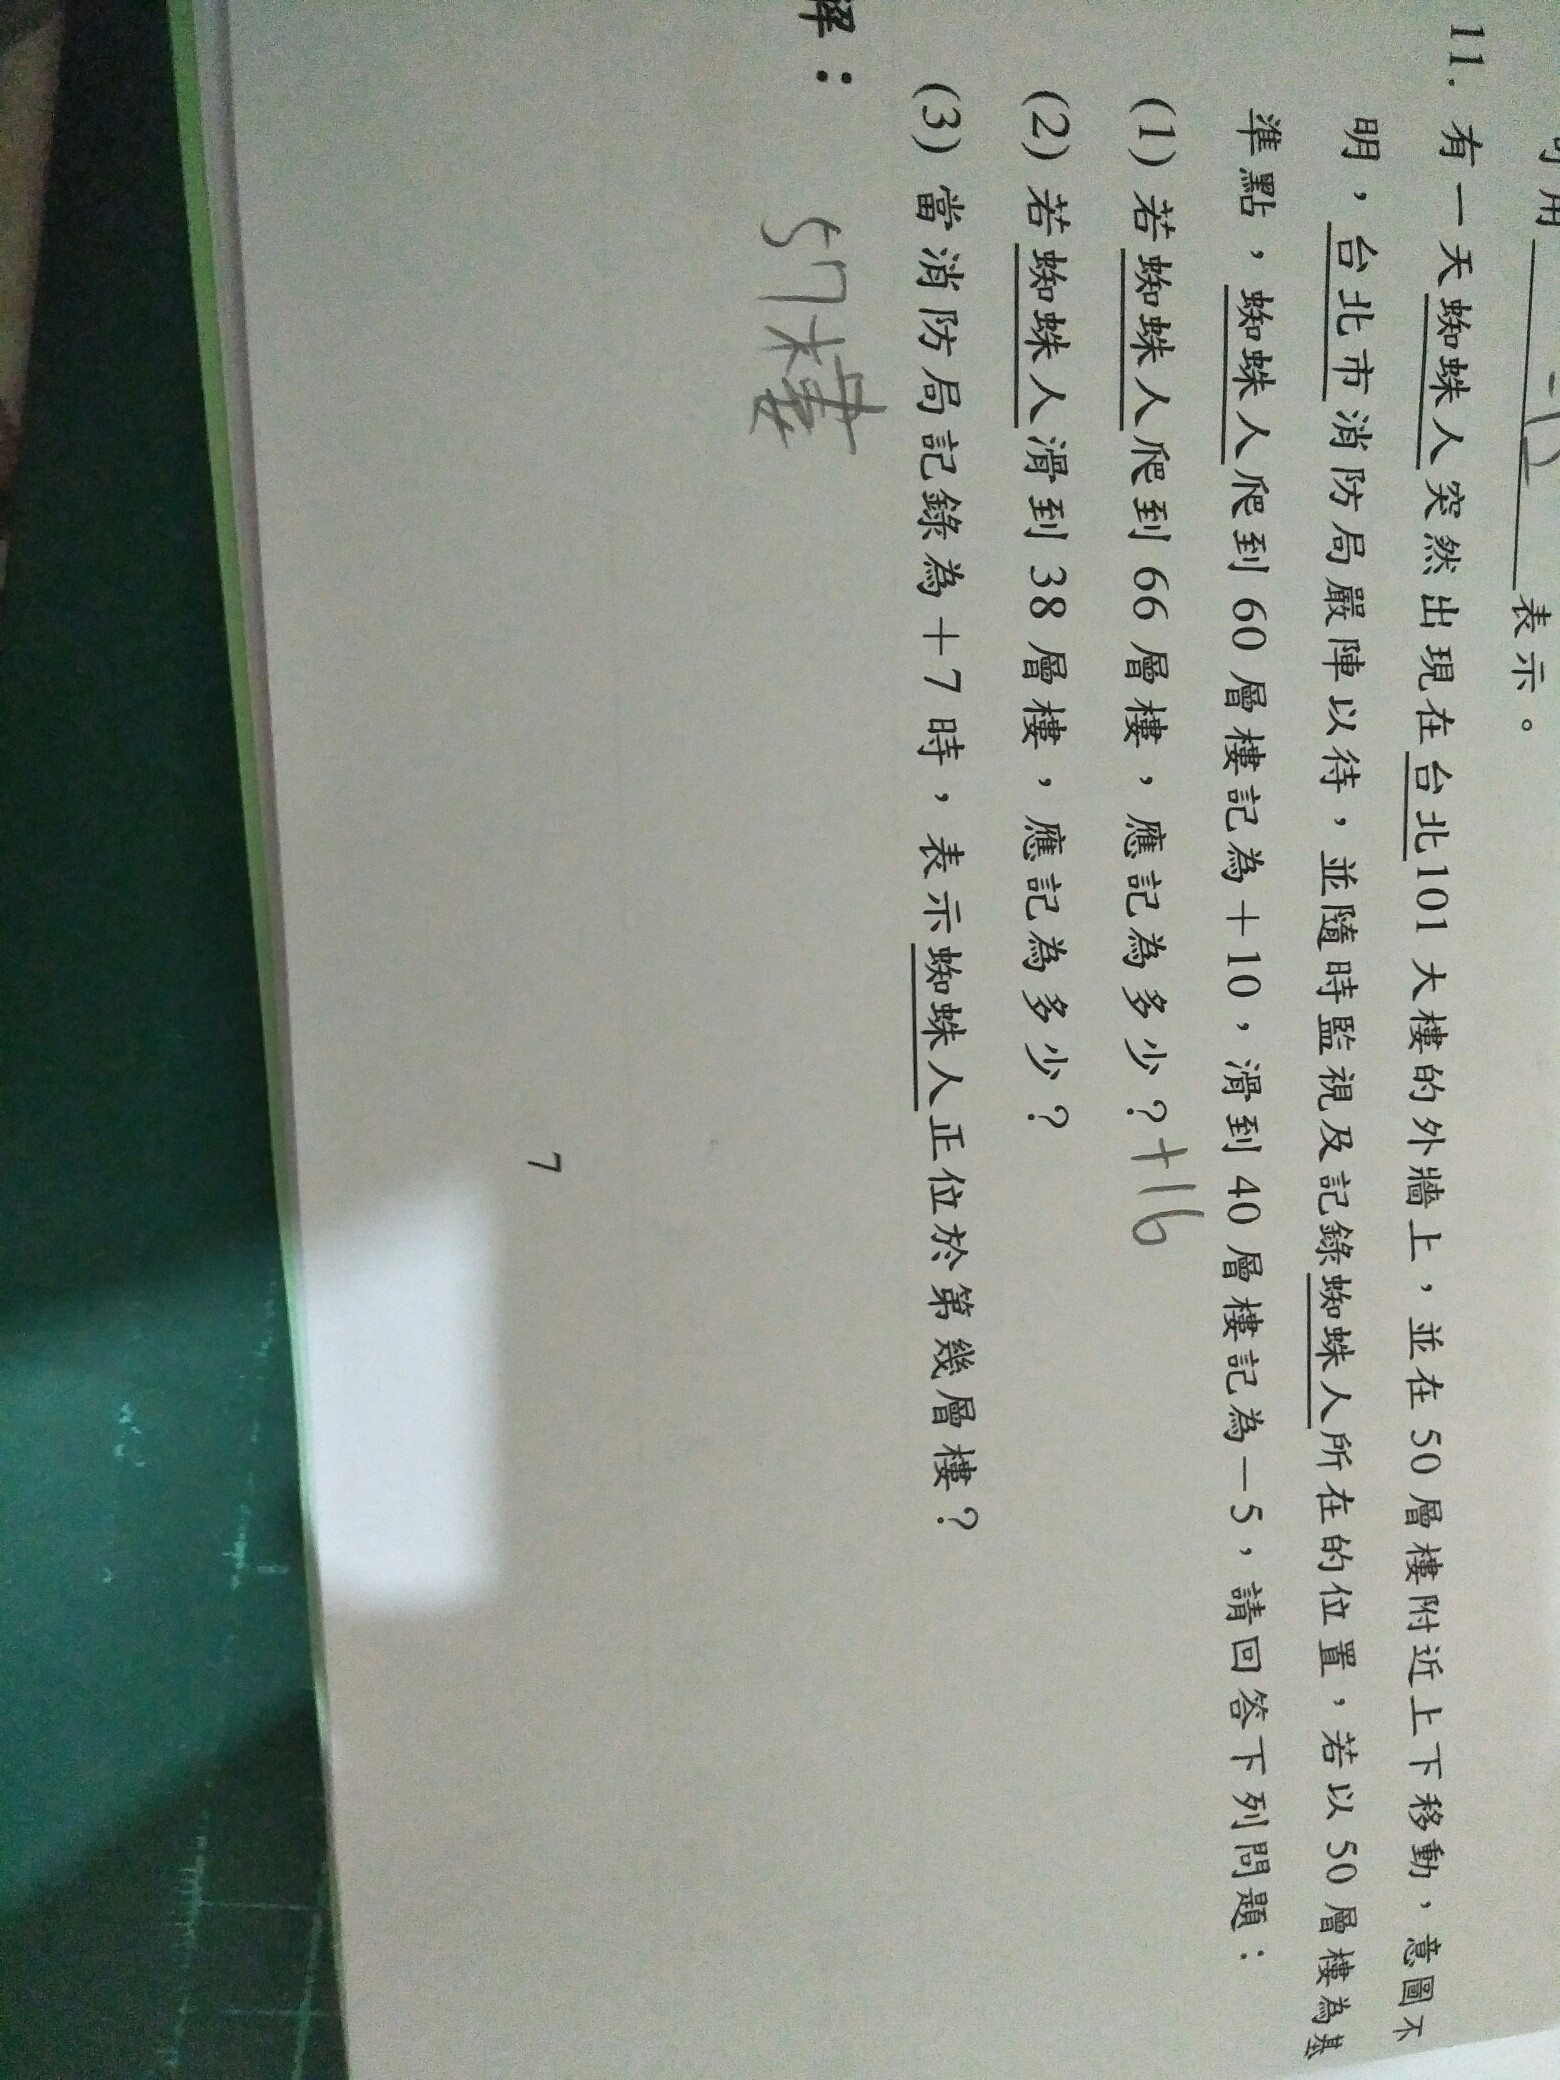 可用 -12 表示。
11. 有一天蜘蛛人突然出現在台北101大樓的外牆上，並在50層樓附近上下移動，意圖不
明，台北市消防局嚴陣以待，並隨時監視及記錄蜘蛛人所在的位置，若以50層樓為基
準點，蜘蛛人爬到60層樓記為＋10，滑到40層樓記為－5，請回答下列問題：
(1) 若蜘蛛人爬到66層樓，應記為多少？+16
(2) 若蜘蛛人滑到38層樓，應記為多少？
(3) 當消防局記錄為＋7時，表示蜘蛛人正位於第幾層樓？
解：
57樓
7